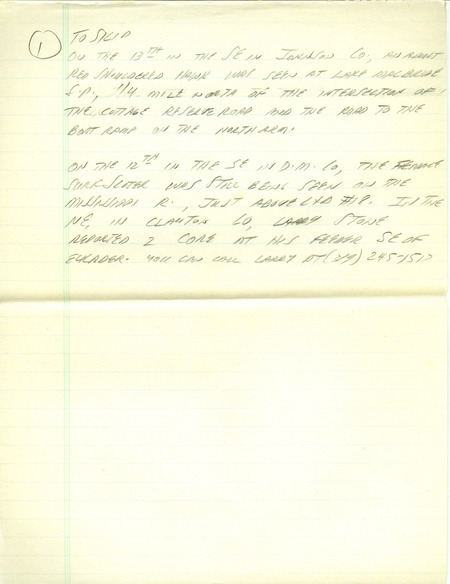 1
TO SKIP
ON THE 13TH IN THE SE IN JOHNSON CO., AN ADULT
RED SHOULDERED HAWK WAS SEEN AT LAKE MACBRIDE
S.P., 1/4 MILE NORTH OF THE INTERSECTION OF
THE COTTAGE RESERVE ROAD AND THE ROAD TO THE
BOAT RAMP ON THE NORTH ARM.
ON THE 12TH IN THE SE IN D.M. CO, THE FEMALE
SURF SCOTER WAS STILL BEING SEEN ON THE
MISSISSIPPI R., JUST ABOVE L&D #18. IN THE
NE, IN CLAYTON CO, LARRY STONE
REPORTED 2 CORE AT HIS FEEDER SE OF
ELKADER. YOU CAN CALL LARRY AT (319) 245-1517